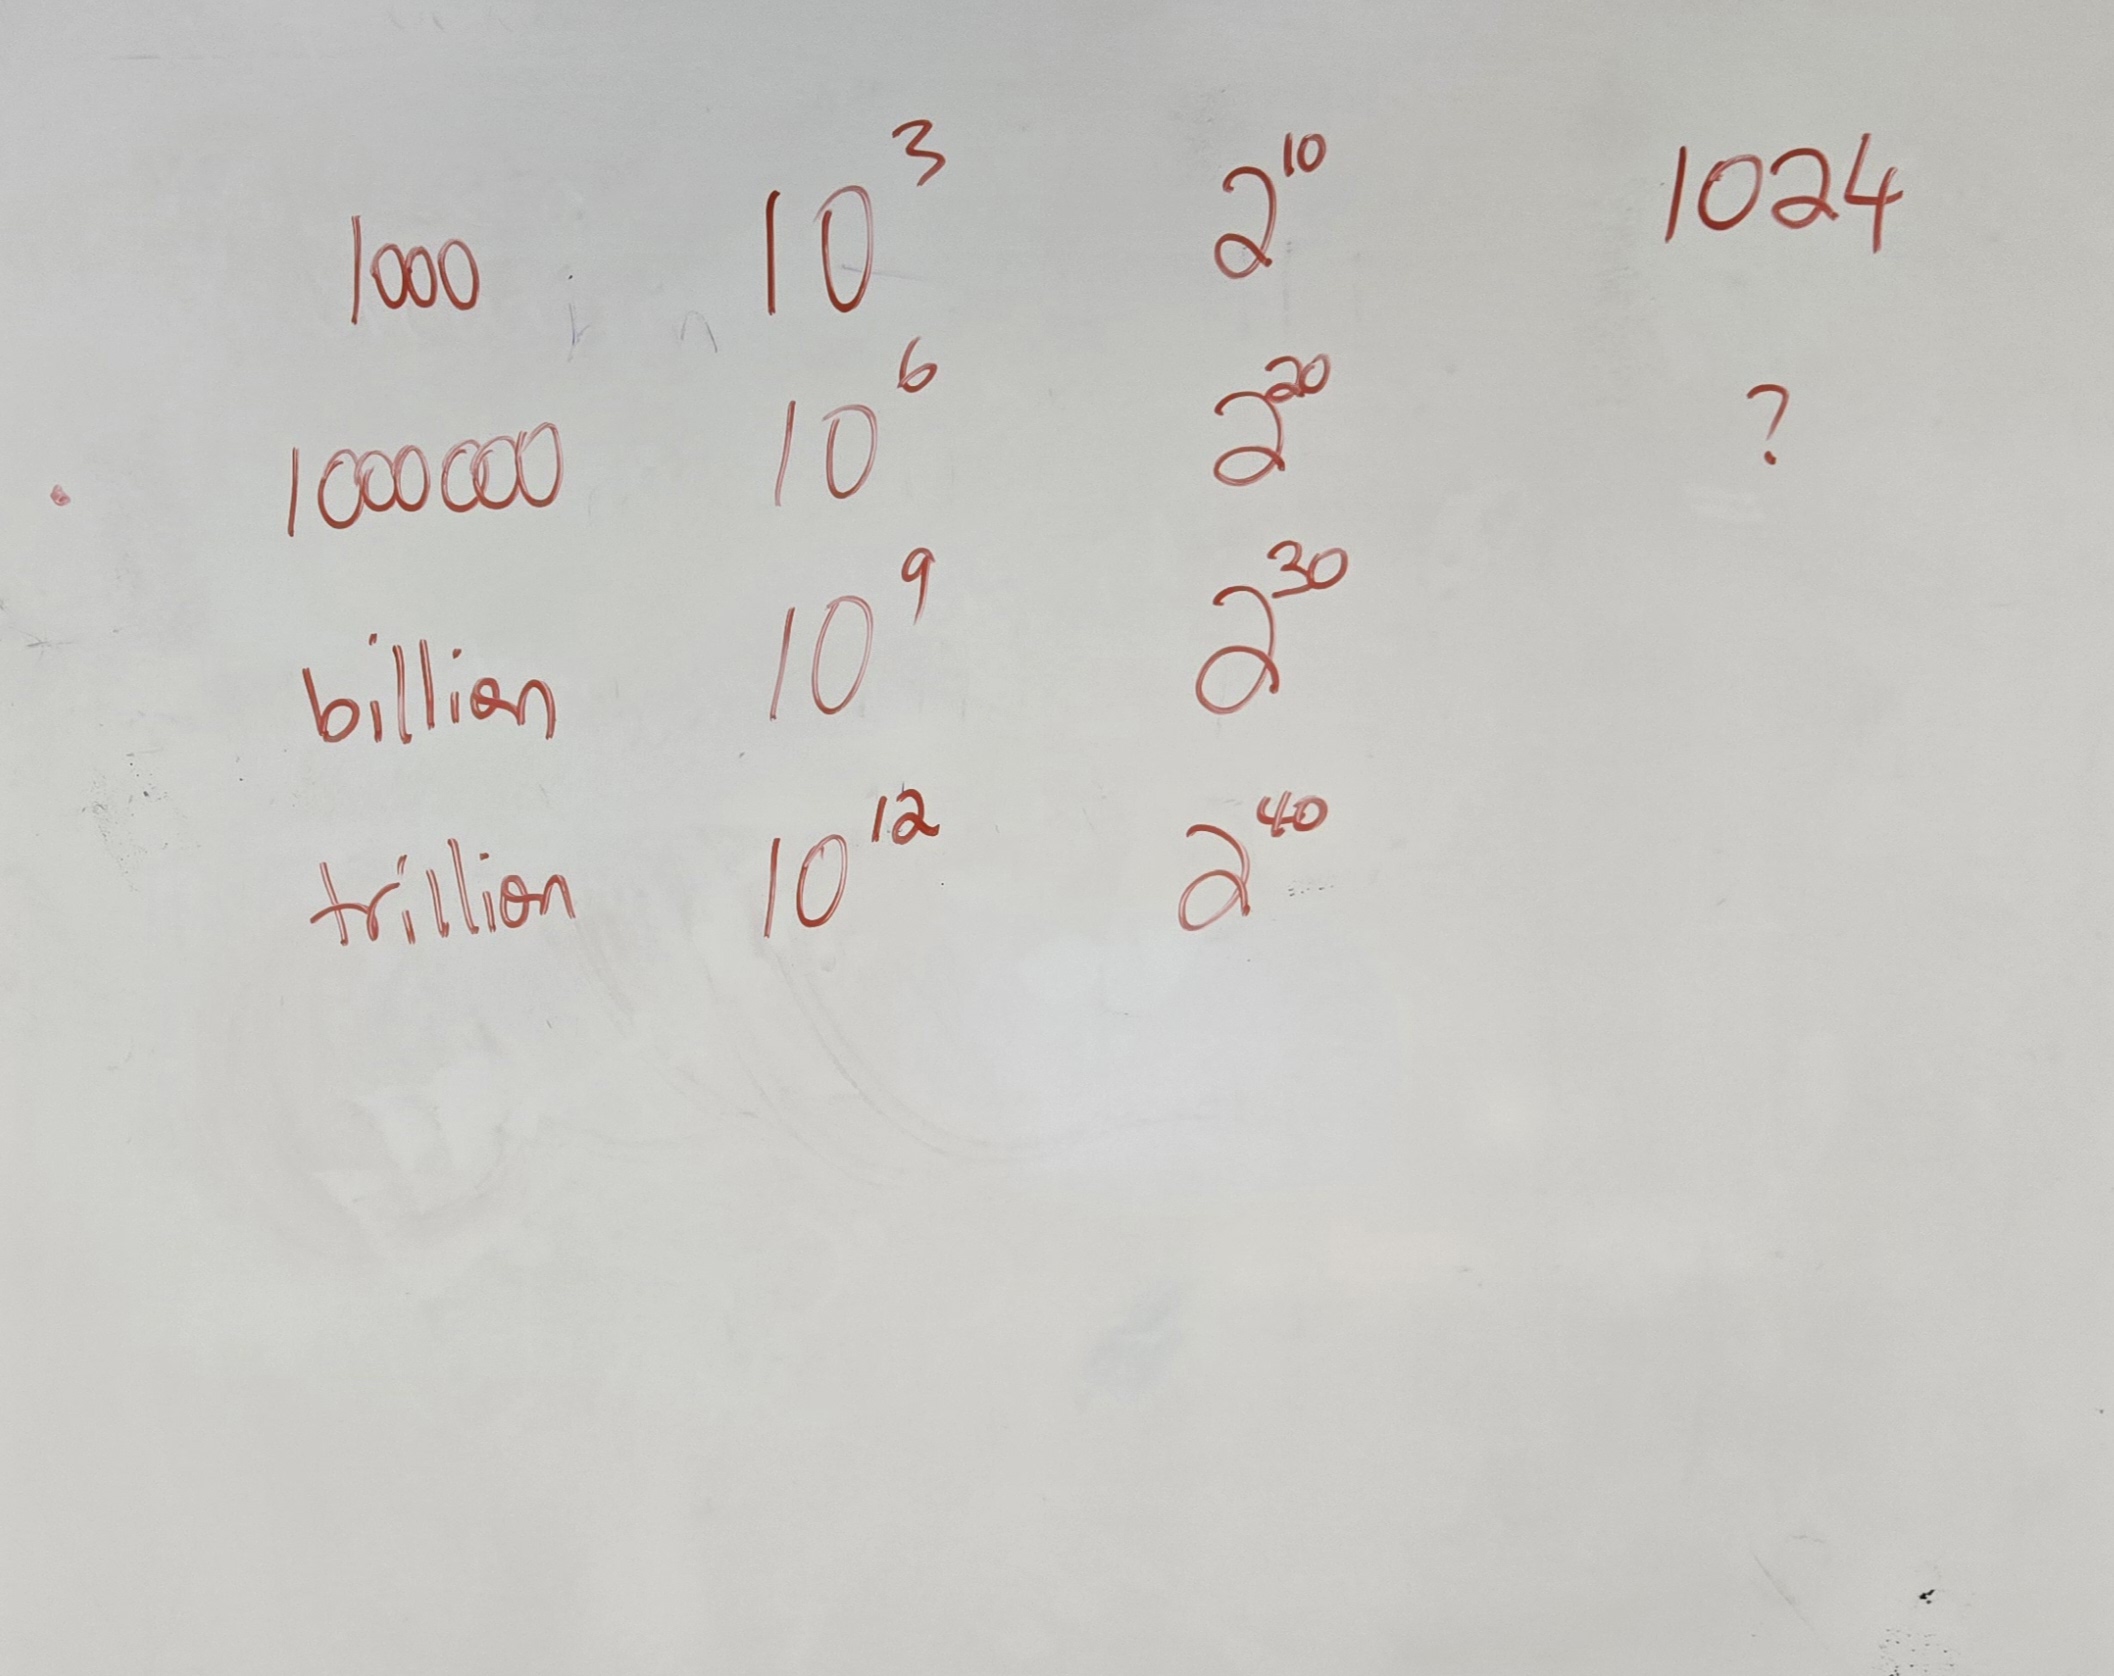 1000 10³ 2¹⁰ 1024
1000000 10⁶ 2²⁰ ?
billion 10⁹ 2³⁰
trillion 10¹² 2⁴⁰